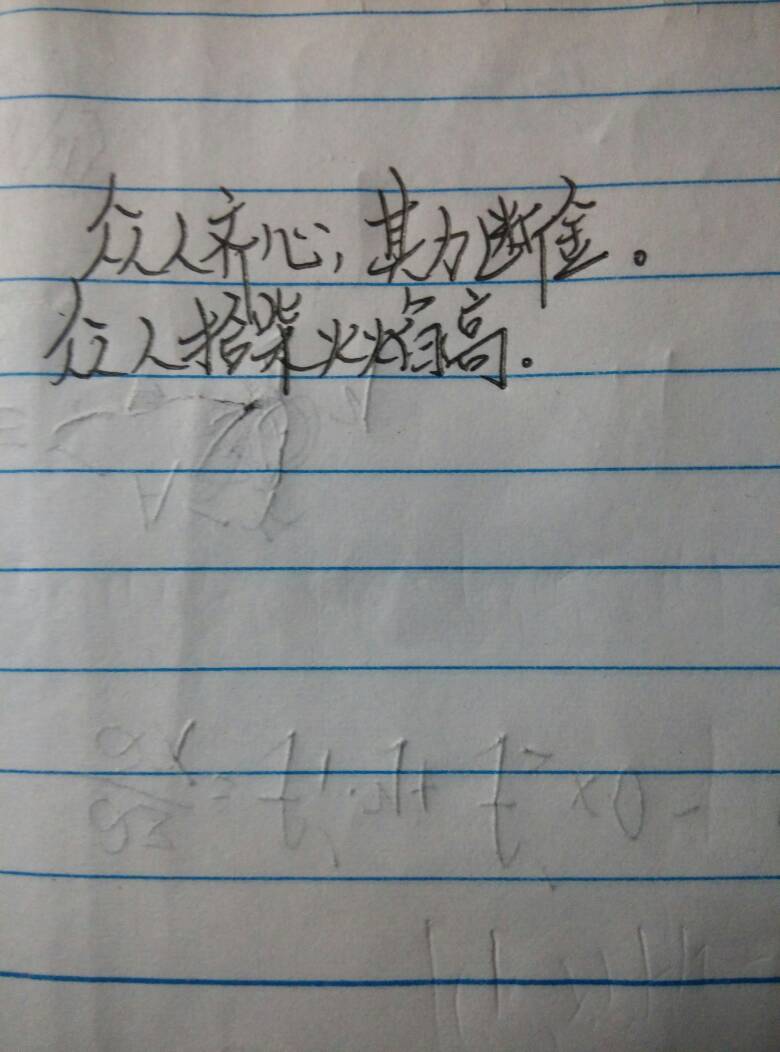 众人齐心，其力断金。
众人拾柴火焰高.